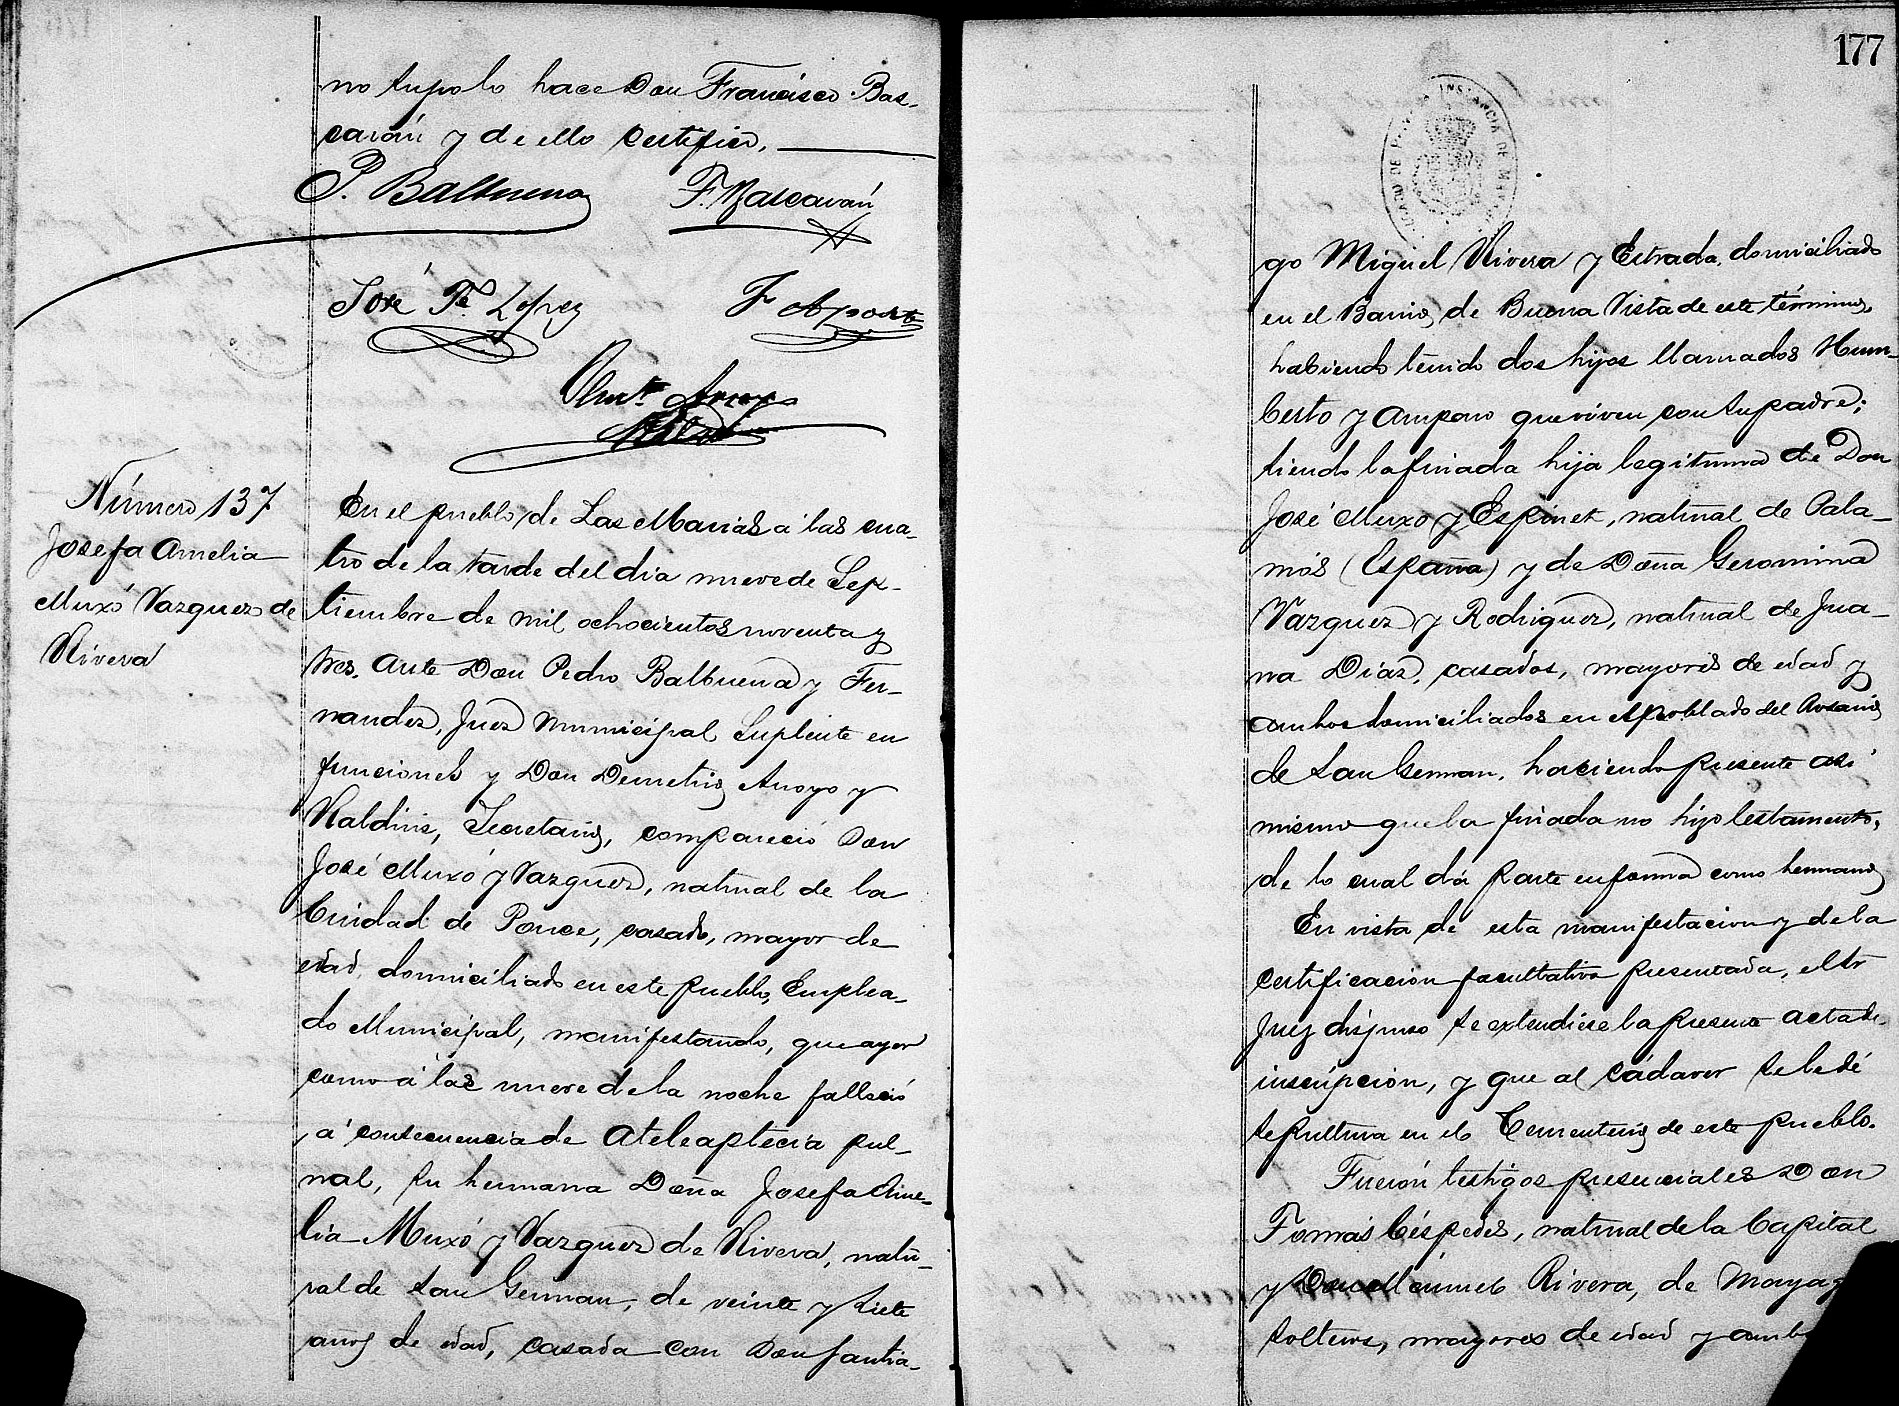 no supo lo hace Don Francisco Bas-
caván y de ello certifico.
P. Balbuena F. Mascaván
José Fe. Lopez F Aponte
Demt. Arroyo
Número 137
Josefa Amelia
Muxó Vazquez de
Rivera
En el pueblo de Las Marias á las cua-
tro de la tarde del dia nueve de Sep-
tiembre de mil ochocientos noventa y
tres, ante Don Pedro Balbuena y Fer-
nandez, Juez Municipal Suplente en
funciones y Don Demetrio Arroyo y
Valdivie, Secretario, compareció Don
José Muxó y Vazquez, natural de la
Ciudad de Ponce, casado, mayor de
edad, domiciliado en este pueblo, Emplea-
do Municipal, manifestando, que ayer
como á las nueve de la noche falleció
á consecuencia de Ateleaptecia pul-
nal, su hermana Doña Josefa Ame-
lia Muxó y Vazquez de Rivera, natu-
ral de San German, de veinte y siete
años de edad, casada con Don Santia-
177
INSTANCIA DE
go Miguel Rivera y Estrada, domiciliado
en el Barrio de Buena Vista de este término,
habiendo tenido dos hijos llamados Hum-
berto y Amparo que viven con su padre;
siendo la finada hija legitima de Don
José Muxo y Espinet, natural de Pala-
mós (España) y de Doña Geronima
Vazquez y Rodriguez, natural de Jua-
na Diaz, casados, mayores de edad y
ambos domiciliados en el poblado del Rosario
de San German, haciendo presente así
mismo que la finada no hizo testamento,
de lo cual dá parte en forma como hermano
En vista de esta manifestacion y de la
certificacion facultativa presentada, el Sr
Juez dispuso se extendiese la presente acta de
inscripcion, y que al cadáver se le dé
sepultura en el Cementerio de este pueblo.
Fueron testigos presenciales Don
Tomás Céspedes, natural de la Capital
y Don Manuel Rivera, de Mayag
solteros, mayores de edad y amb